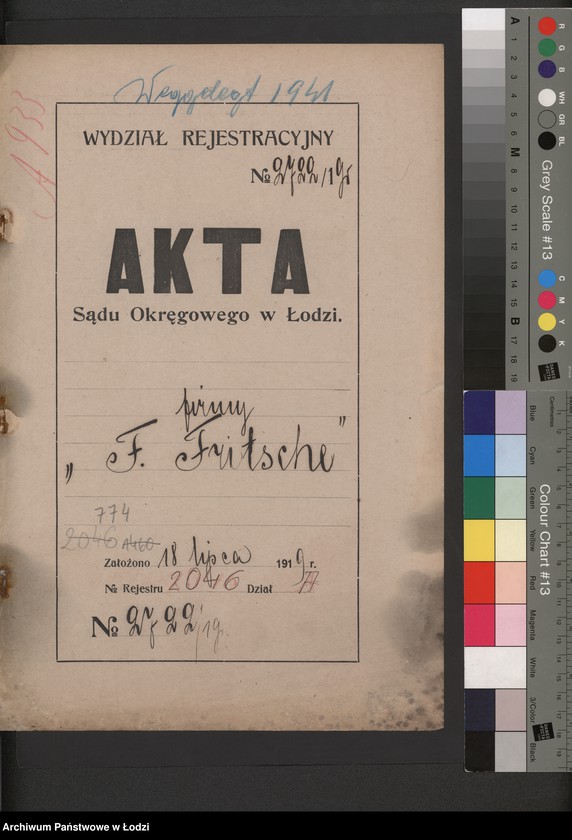 1941
A 933
WYDZIAŁ REJESTRACYJNY
№ 2722/19
AKTA
Sądu Okręgowego w Łodzi.
firmy
„F. Fritsche"
774
2046 A460
Założono 18 lipca 1919 r.
№ Rejestru 2046 Dział A
№ 2722/19.
A 1 2 3 4 5 6 M 8 9 10 11 12 13 14 15 B 17 18 19
R G B WH GR BL
Grey Scale #13
C M Y K
Blue Cyan Green Yellow Red Magenta White 3/Color Black
Colour Chart #13
Archiwum Państwowe w Łodzi